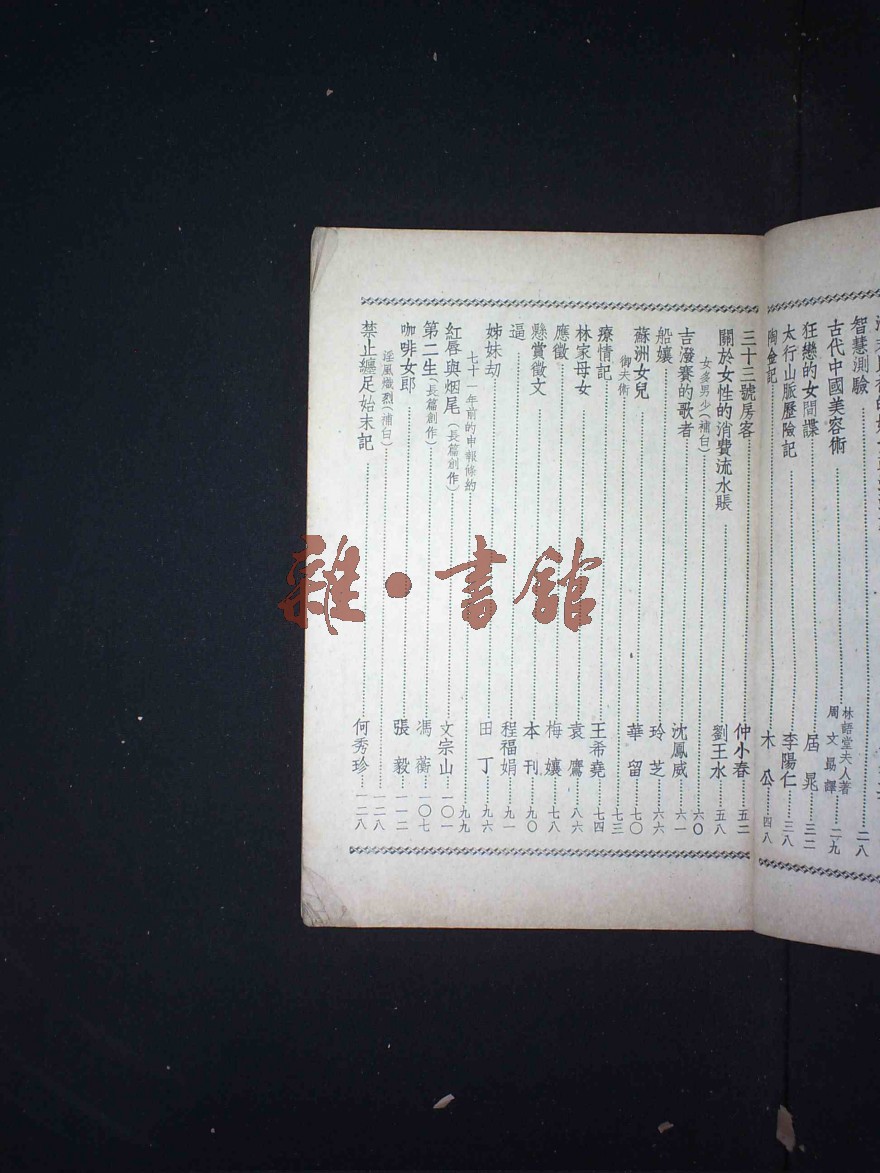 智慧測驗……二八
古代中國美容術……林語堂夫人著 周文昜譯……二九
狂戀的女間諜……居晃……三二
太行山脈歷險記……李陽仁……三八
陶金記……木公……四八
三十三號房客……仲小春……五三
關於女性的消費流水賬……劉王水……五八
女多男少(補白)……六〇
吉潑賽的歌者……沈鳳威……六一
船孃……玲芝……六六
蘇洲女兒……華留……七〇
御夫術……七三
療情記……王希堯……七四
林家母女……袁鷹……八六
應徵……梅孃……七八
懸賞徵文……本刊……九〇
逼……程福娟……九一
姊妹刧……田丁……九六
七十一年前的申報條約……九九
紅唇與烟尾(長篇創作)……文宗山……一〇一
第二生(長篇創作)……馮蘅……一〇七
咖啡女郎……張毅……一一二
淫風熾烈(補白)……一二八
禁止纏足始末記……何秀珍……一二八
雜·書館